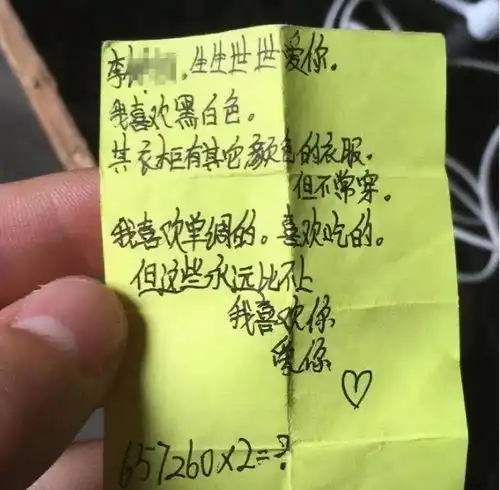 李 . 生生世世爱你.
我喜欢黑白色。
其衣柜有其它颜色的衣服.
但不常穿。
我喜欢单绸的。喜欢吃的。
但这些永远比不上
我喜欢你
爱你
657260×2=?